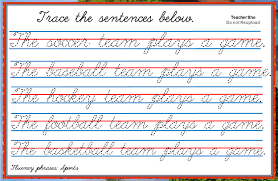 Trace the sentences below.
TeacherShe
Do not Reupload
The soccer team plays a game.
The baseball team plays a game.
The hockey team plays a game.
The football team plays a game.
The basketball team plays a game.
Fluency phrases: Sports